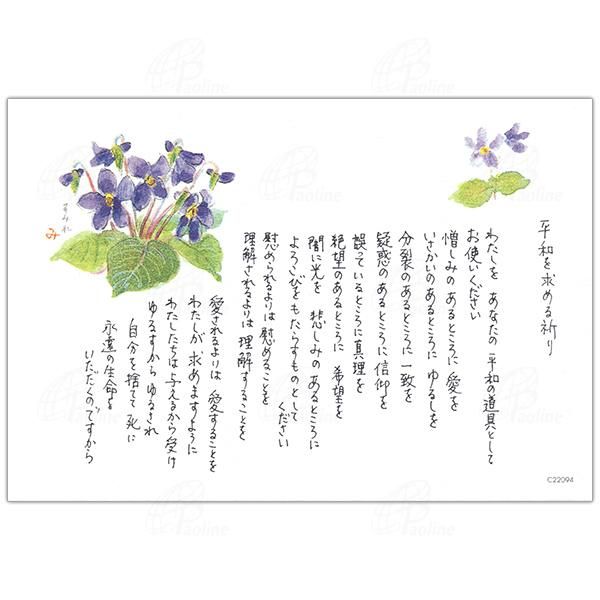 平和を求める祈り
わたしを あなたの 平和の道具として
お使いください
憎しみの あるところに 愛を
いさかいのあるところに ゆるしを
分裂のあるところに 一致を
疑惑のあるところに 信仰を
誤っているところに 真理を
絶望のあるところに 希望を
闇に光を 悲しみのあるところに
よろこびをもたらすものとして
ください
慰められるよりは 慰めることを
理解されるよりは 理解することを
愛されるよりは 愛することを
わたしが 求めますように
わたしたちは 与えるから 受け
ゆるすから ゆるされ
自分を捨てて 死に
永遠の生命を
いただくのですから
すみれ
み
C22094
Paoline
Paoline
Paoline
Paoline
Paoline
Paoline
Paoline
Paoline
Paoline